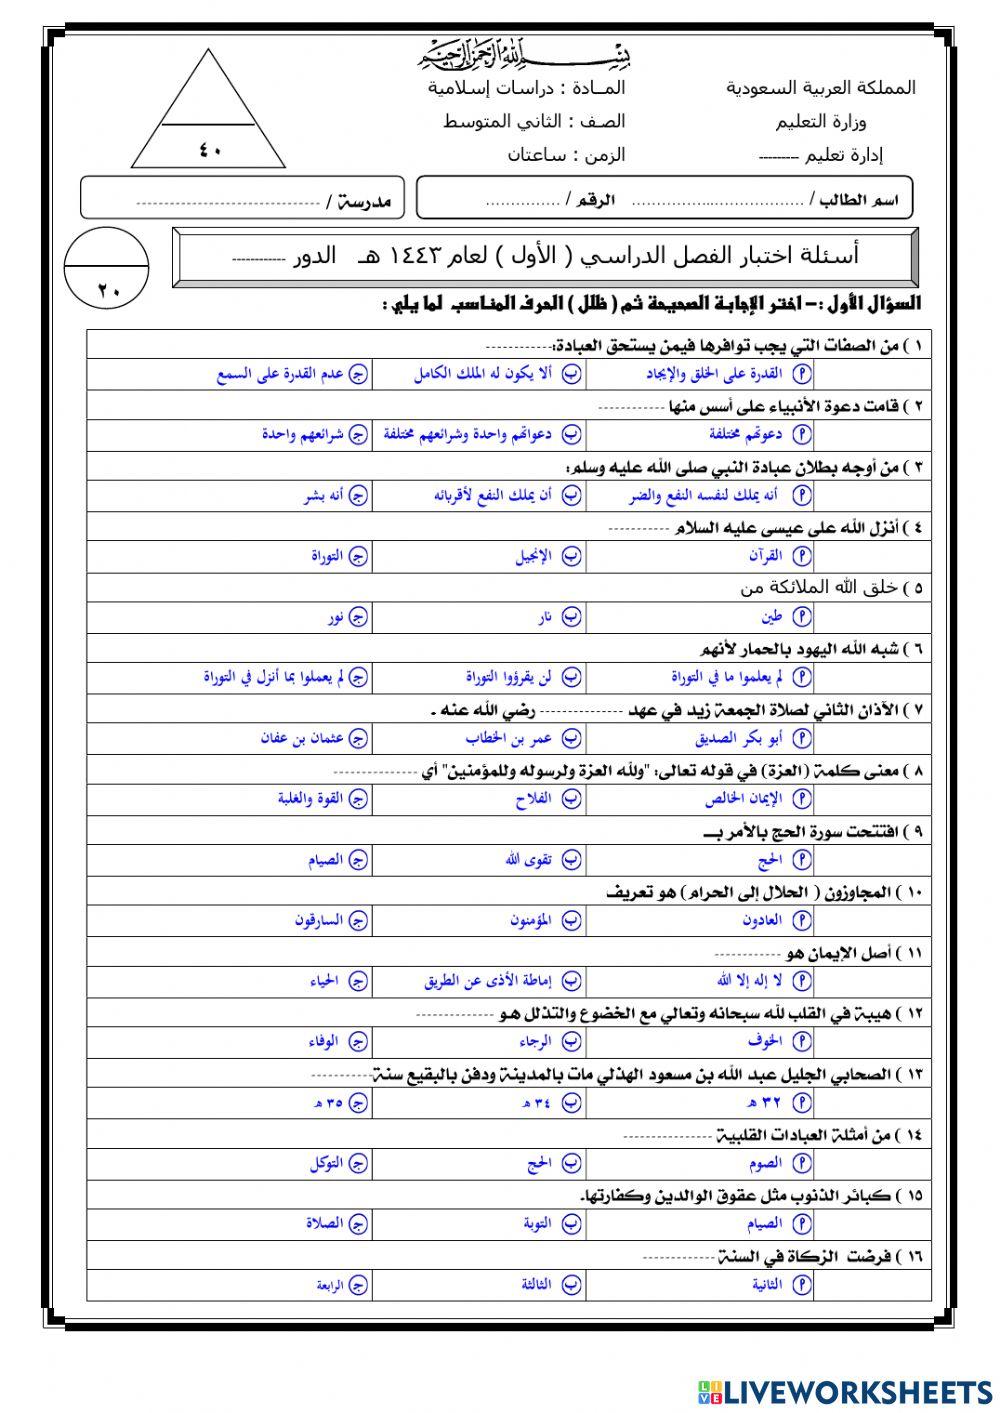 بسم الله الرحمن الرحيم
المملكة العربية السعودية
وزارة التعليم
إدارة تعليم ---------
المـادة : دراسات إسلامية
الصف : الثاني المتوسط
الزمن : ساعتان
٤٠
اسم الطالب / .................................. الرقم / ..............
مدرسة / ------------------------------
أسئلة اختبار الفصل الدراسي ( الأول ) لعام ١٤٤٣ هـ الدور -----------
٢٠
السؤال الأول :- اختر الإجابة الصحيحة ثم ( ظلل ) الحرف المناسب لما يلي :
١ ) من الصفات التي يجب توافرها فيمن يستحق العبادة:-----------
م القدرة على الخلق والإيجاد ب ألا يكون له الملك الكامل ج عدم القدرة على السمع
٢ ) قامت دعوة الأنبياء على أسس منها -----------
م دعوتهم مختلفة ب دعواتهم واحدة وشرائعهم مختلفة ج شرائعهم واحدة
٣ ) من أوجه بطلان عبادة النبي صلى الله عليه وسلم:
م أنه يملك لنفسه النفع والضر ب أن يملك النفع لأقربائه ج أنه بشر
٤ ) أنزل الله على عيسى عليه السلام ----------
م القرآن ب الإنجيل ج التوراة
٥ ) خلق الله الملائكة من
م طين ب نار ج نور
٦ ) شبه الله اليهود بالحمار لأنهم
م لم يعلموا ما في التوراة ب لن يقرؤوا التوراة ج لم يعملوا بما أنزل في التوراة
٧ ) الآذان الثاني لصلاة الجمعة زيد في عهد -------------- رضي الله عنه .
م أبو بكر الصديق ب عمر بن الخطاب ج عثمان بن عفان
٨ ) معنى كلمة (العزة) في قوله تعالى: "ولله العزة ولرسوله وللمؤمنين" أي --------------
م الإيمان الخالص ب الفلاح ج القوة والغلبة
٩ ) افتتحت سورة الحج بالأمر بــ
م الحج ب تقوى الله ج الصيام
١٠ ) المجاوزون ( الحلال إلى الحرام) هو تعريف
م العادون ب المؤمنون ج السارقون
١١ ) أصل الإيمان هو -----------
م لا إله إلا الله ب إماطة الأذى عن الطريق ج الحياء
١٢ ) هيبة في القلب لله سبحانه وتعالي مع الخضوع والتذلل هو -------------
م الخوف ب الرجاء ج الوفاء
١٣ ) الصحابي الجليل عبد الله بن مسعود الهذلي مات بالمدينة ودفن بالبقيع سنة----------
م ٣٢ هـ ب ٣٤ هـ ج ٣٥ هـ
١٤ ) من أمثلة العبادات القلبية ---------------
م الصوم ب الحج ج التوكل
١٥ ) كبائر الذنوب مثل عقوق الوالدين وكفارتها.
م الصيام ب التوبة ج الصلاة
١٦ ) فرضت الزكاة في السنة ------------
م الثانية ب الثالثة ج الرابعة
LIVE LIVEWORKSHEETS